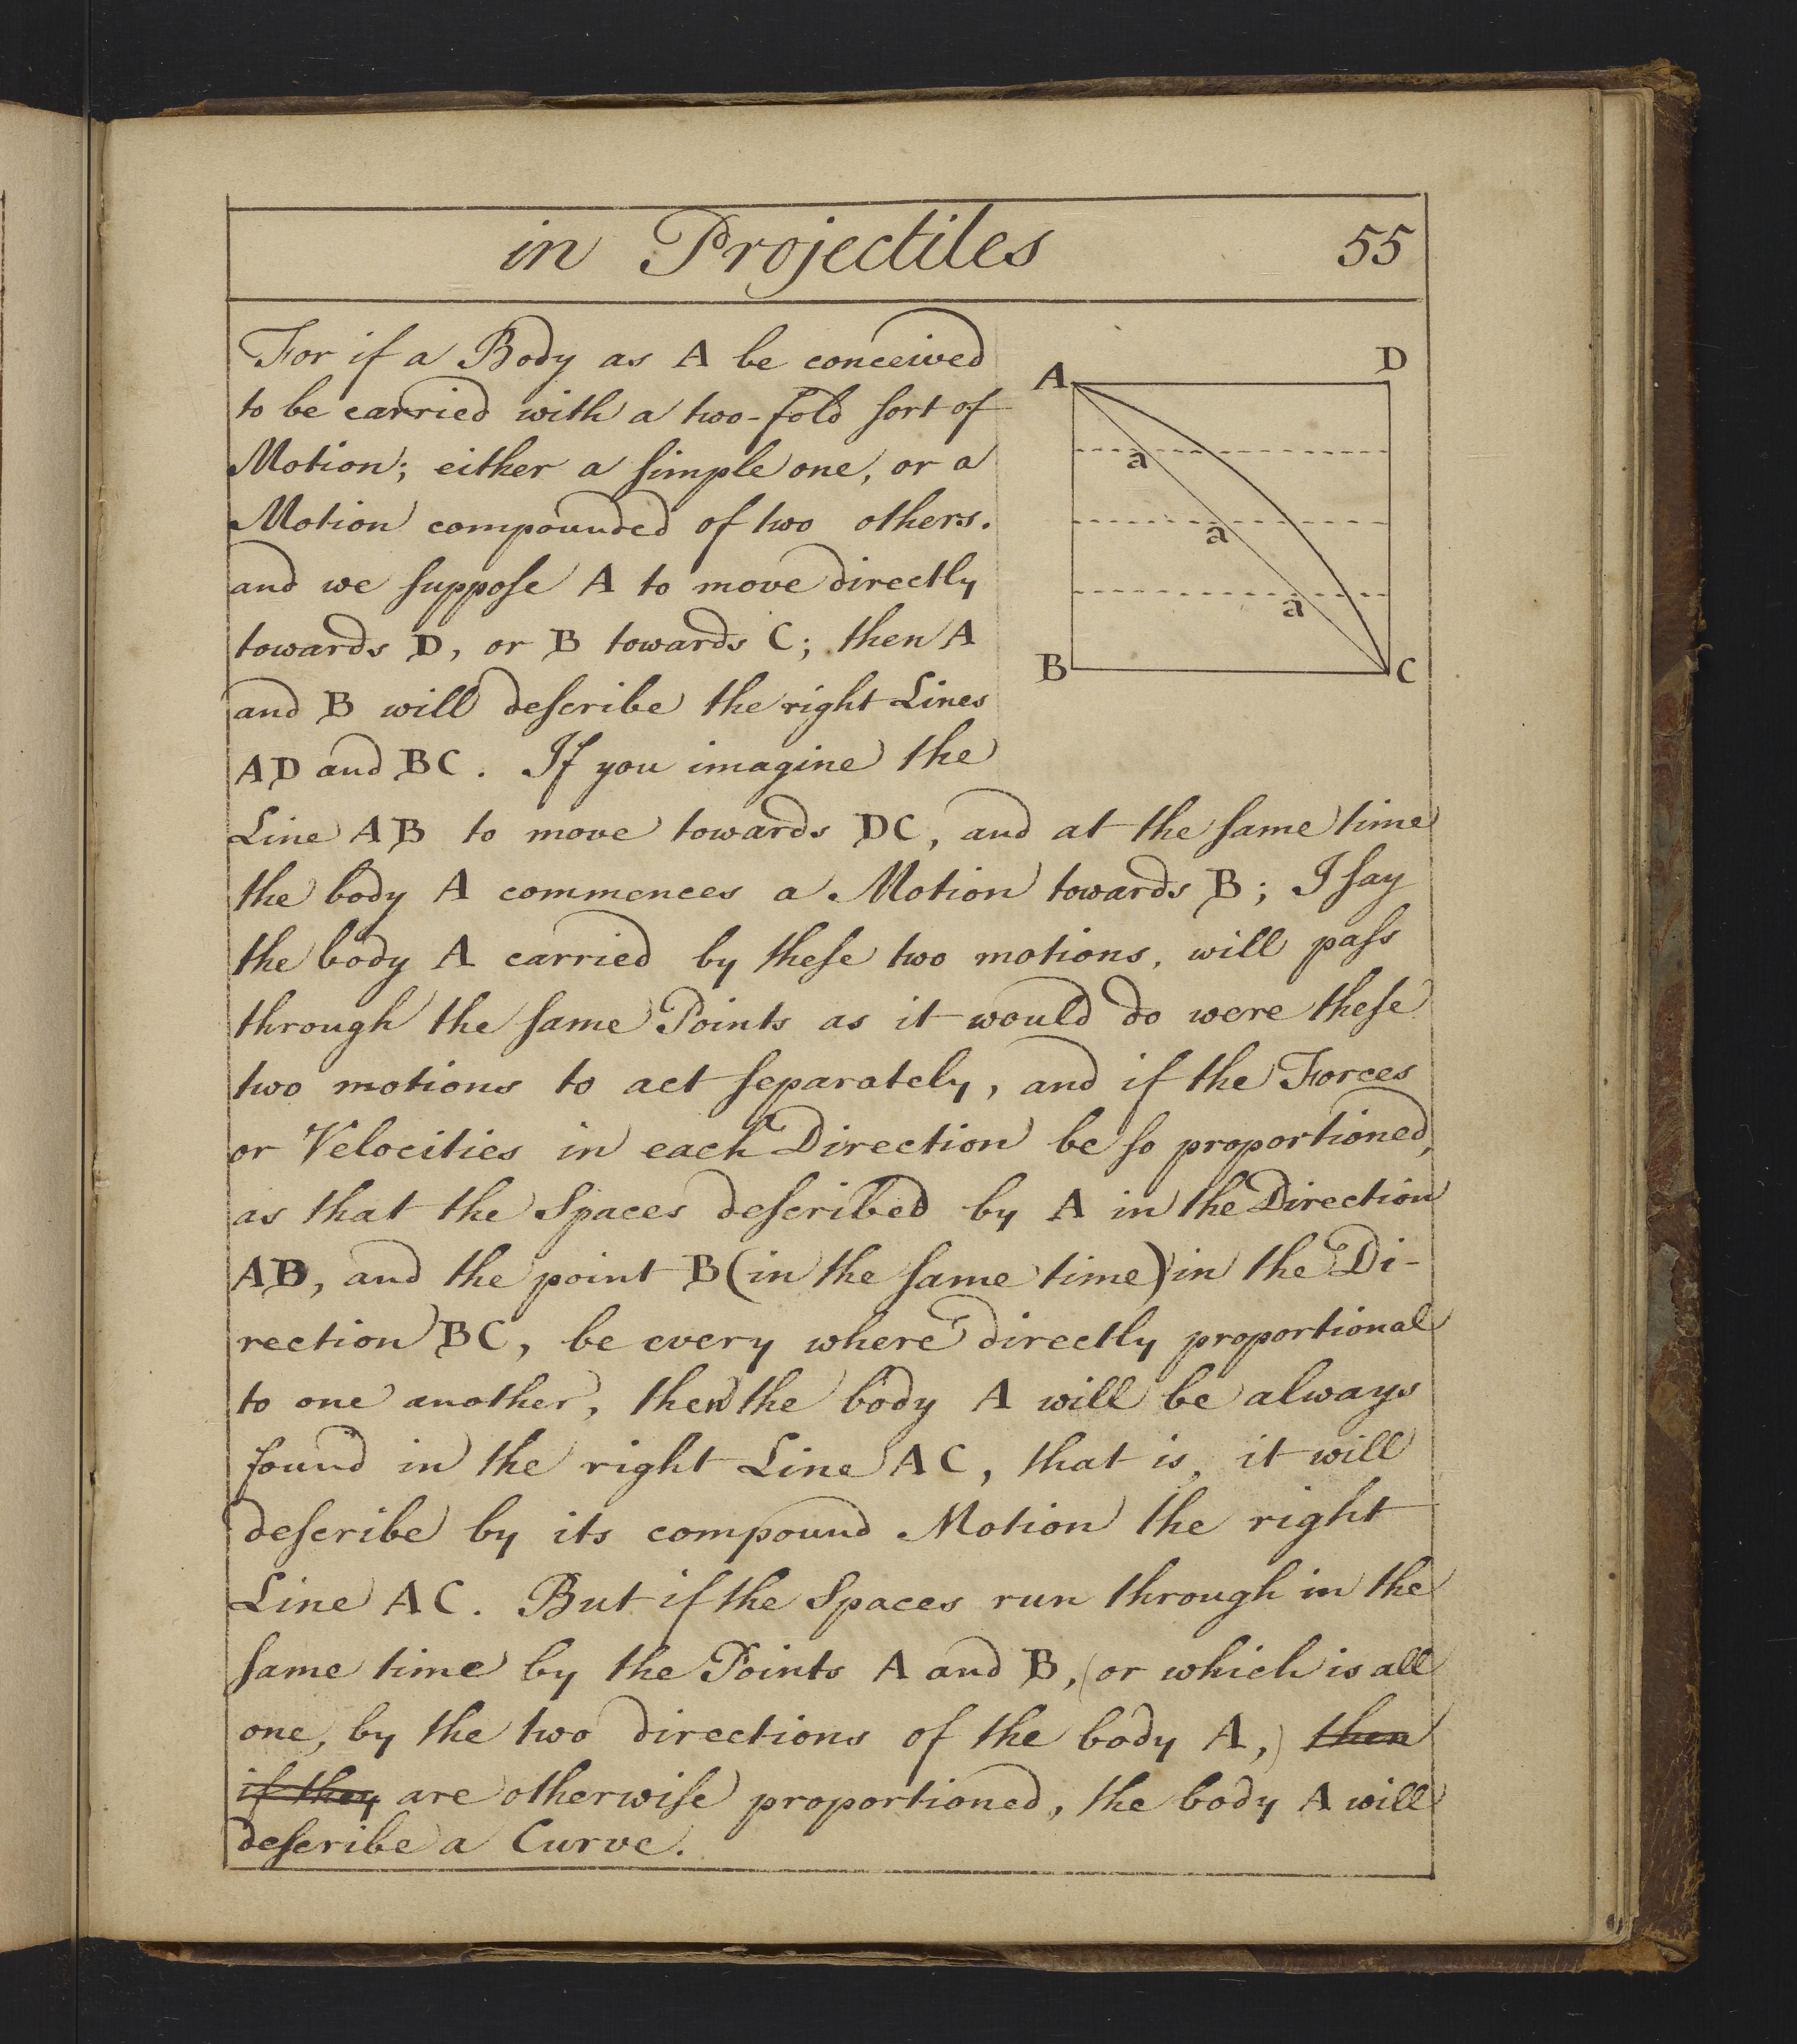 in Projectiles 55
For if a Body as A be conceived
to be carried with a two-fold ſort of
Motion; either a ſimple one, or a
Motion compounded of two others.
and we ſuppoſe A to move directly
towards D, or B towards C; then A
and B will deſcribe the right Lines
AD and BC. If you imagine the
A
D
a
a
a
B
C
Line AB to move towards DC, and at the ſame time
the body A commences a Motion towards B; I ſay
the body A carried by theſe two motions, will paſs
through the ſame Points as it would do were theſe
two motions to act ſeparately, and if the Forces
or Velocities in each Direction be ſo proportioned,
as that the Spaces deſcribed by A in the Direction
AB, and the point B (in the ſame time) in the Di-
rection BC, be every where directly proportional
to one another, then the body A will be always
found in the right Line AC, that is, it will
deſcribe by its compound Motion the right
Line AC. But if the Spaces run through in the
ſame time by the Points A and B, (or which is all
one, by the two directions of the body A,) then
if they are otherwiſe proportioned, the body A will
deſcribe a Curve.